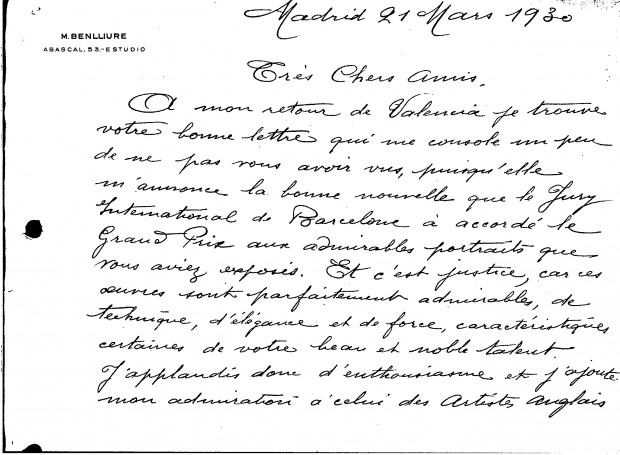 Madrid 21 Mars 1930
M. BENLLIURE
ABASCAL, 53.-ESTUDIO
Très Chers Amis.
A mon retour de Valencia je trouve
votre bonne lettre qui me console un peu
de ne pas vous avoir vus, puisqu'elle
m'annonce la bonne nouvelle que le Jury
International de Barcelone à accordé le
Grand Prix aux admirables portraits que
vous aviez exposés. Et c'est justice, car ces
œuvres sont parfaitement admirables, de
technique, d'élégance et de force, caractéristiques
certaines de votre beau et noble talent.
J'applaudis donc d'enthousiasme et j'ajoute
mon admiration à celui des Artistes Anglais